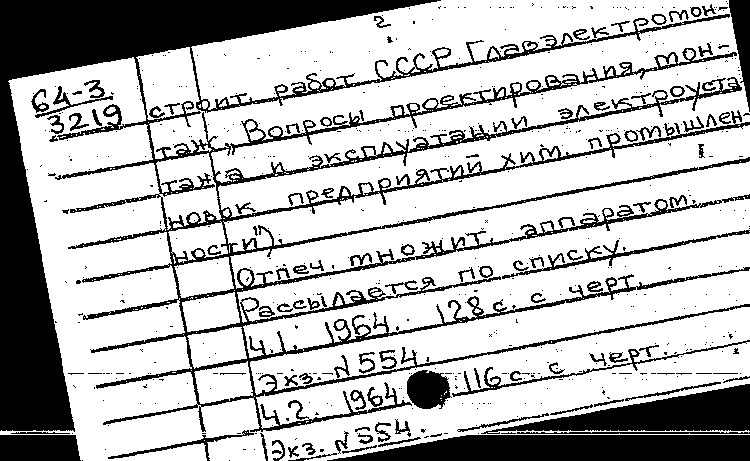 2
64-3
3219
строит. работ СССР. Главэлектромон-
таж„ Вопросы проектирования, мон-
тажа и эксплуатации электроуста
новок предприятий хим. промышлен-
ности").
Отпеч. множит. аппаратом.
Рассылается по списку.
Ч.1. 1964. 128 с. с черт.
Экз. №554.
Ч.2. 1964. 116 с. с черт.
Экз. №554.